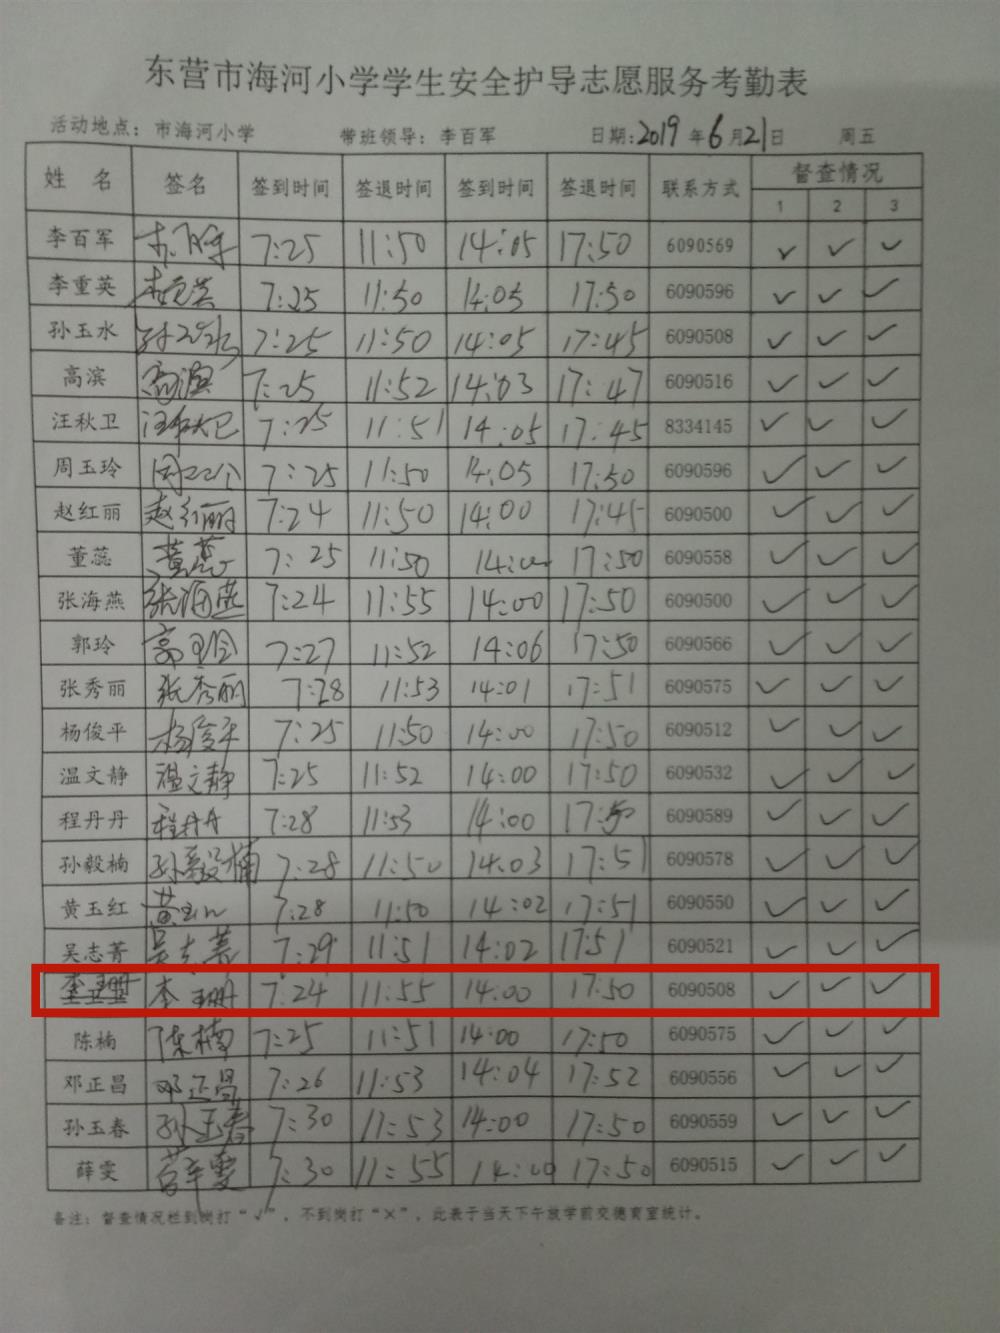 东营市海河小学学生安全护导志愿服务考勤表
活动地点：市海河小学 带班领导：李百军 日期：2019年6月21日 周五
姓 名 签名 签到时间 签退时间 签到时间 签退时间 联系方式 督查情况
1 2 3
李百军 7:25 11:50 14:05 17:50 6090569 ✓ ✓ ✓
李重英 李重英 7:25 11:50 14:05 17:50 6090596 ✓ ✓ ✓
孙玉水 孙玉水 7:25 11:50 14:05 17:45 6090508 ✓ ✓ ✓
高滨 高滨 7:25 11:52 14:03 17:47 6090516 ✓ ✓ ✓
汪秋卫 汪秋卫 7:25 11:51 14:05 17:45 8334145 ✓ ✓ ✓
周玉玲 周玉玲 7:25 11:50 14:05 17:50 6090596 ✓ ✓ ✓
赵红丽 赵红丽 7:24 11:50 14:00 17:45 6090500 ✓ ✓ ✓
董蕊 董蕊 7:25 11:50 14:00 17:50 6090558 ✓ ✓ ✓
张海燕 张海燕 7:24 11:55 14:00 17:50 6090500 ✓ ✓ ✓
郭玲 郭玲 7:27 11:52 14:06 17:50 6090566 ✓ ✓ ✓
张秀丽 张秀丽 7:28 11:53 14:01 17:51 6090575 ✓ ✓ ✓
杨俊平 杨俊平 7:25 11:50 14:00 17:50 6090512 ✓ ✓ ✓
温文静 温文静 7:25 11:52 14:00 17:50 6090532 ✓ ✓ ✓
程丹丹 程丹丹 7:28 11:53 14:00 17:50 6090589 ✓ ✓ ✓
孙毅楠 孙毅楠 7:28 11:50 14:03 17:51 6090578 ✓ ✓ ✓
黄玉红 黄玉红 7:28 11:50 14:02 17:51 6090550 ✓ ✓ ✓
吴志菁 吴志菁 7:29 11:51 14:02 17:51 6090521 ✓ ✓ ✓
李珊 李珊 7:24 11:55 14:00 17:50 6090508 ✓ ✓ ✓
陈楠 陈楠 7:25 11:51 14:00 17:50 6090575 ✓ ✓ ✓
邓正昌 邓正昌 7:26 11:53 14:04 17:52 6090556 ✓ ✓ ✓
孙玉春 孙玉春 7:30 11:53 14:00 17:50 6090559 ✓ ✓ ✓
薛雯 薛雯 7:30 11:55 14:00 17:50 6090515 ✓ ✓ ✓
备注：督查情况栏到岗打“√”，不到岗打“×”，此表于当天下午放学前交德育室统计。